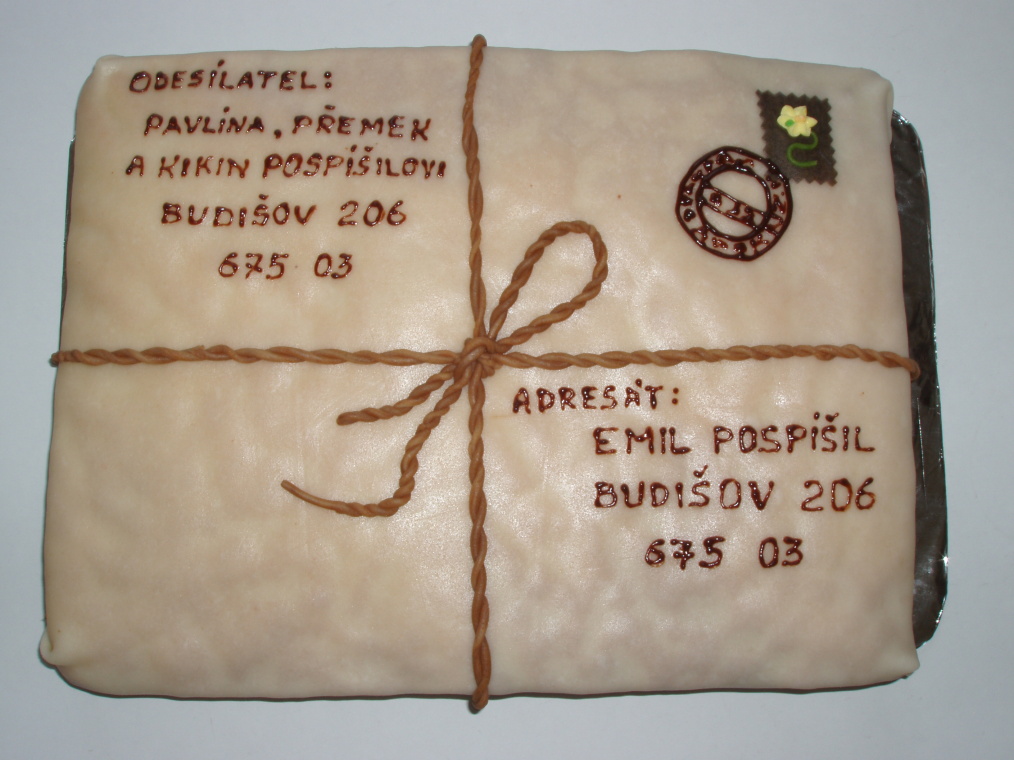 ODESÍLATEL:
PAVLÍNA, PŘEMEK
A KIKIN POSPÍŠILOVI
BUDIŠOV 206
675 03
ADRESÁT:
EMIL POSPÍŠIL
BUDIŠOV 206
675 03